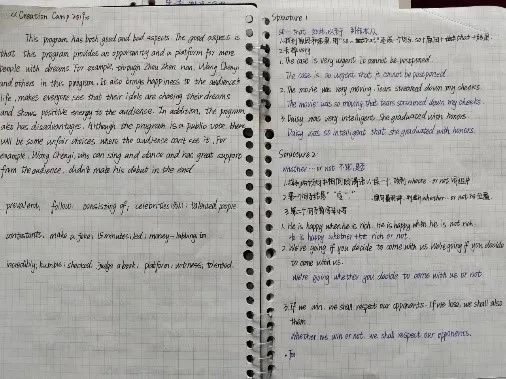 << Creation Camp 2019>>
This program has both good and bad aspects. The good aspect is
that this program provides an opportunity and a platform for more
people with dreams. For example, through Zhou Zhen nan, Wang Chenyi
and others in this program. It also brings happiness to the audience's
life, makes everyone see that their idols are chasing their dreams
and shows positive energy to the audience. In addition, the program
also has disadvantages. Although the program is a public vote, there
will be some unfair choices where the audience can't see it. For
example, Wang Chenyi, who can sing and dance and has great support
from the audience, didn't make his debut in the end.
prevalend, follow, consisting of, celebrities talented people
contestants, make a joke, 15 minutes, led, money-talking in
incredibly, humble, shocked, judge a book, platform, witness, talented
Structure 1
so... that 如此...以至于
1. The case is very urgent. It cannot be postponed.
The case is so urgent that it cannot be postponed.
2. The movie was very moving. Tears streamed down my cheeks
The movie was so moving that tears streamed down my cheeks
3. Daisy was very intelligent. She graduated with honors.
Daisy was so intelligent that she graduated with honors.
Structure 2
whether... or not 不管...是否
1. He is happy when he is rich. He is happy when he is not rich.
He is happy whether he rich or not.
2. We're going if you decide to come with us. We're going if you decide
to come with us.
We're going whether you decide to come with us or not
3. If we win, we shall respect our opponents. If we lose, we shall also
them.
Whether we win or not, we shall respect our opponents.